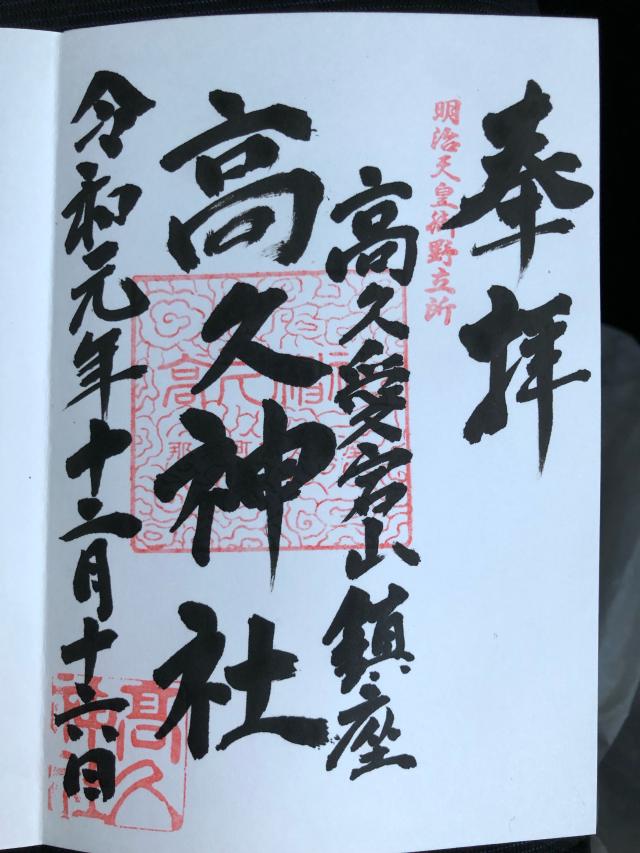 奉拝
明治天皇御野立所
高久愛宕山鎮座
高久神社
令和元年十二月十六日
高久
神社